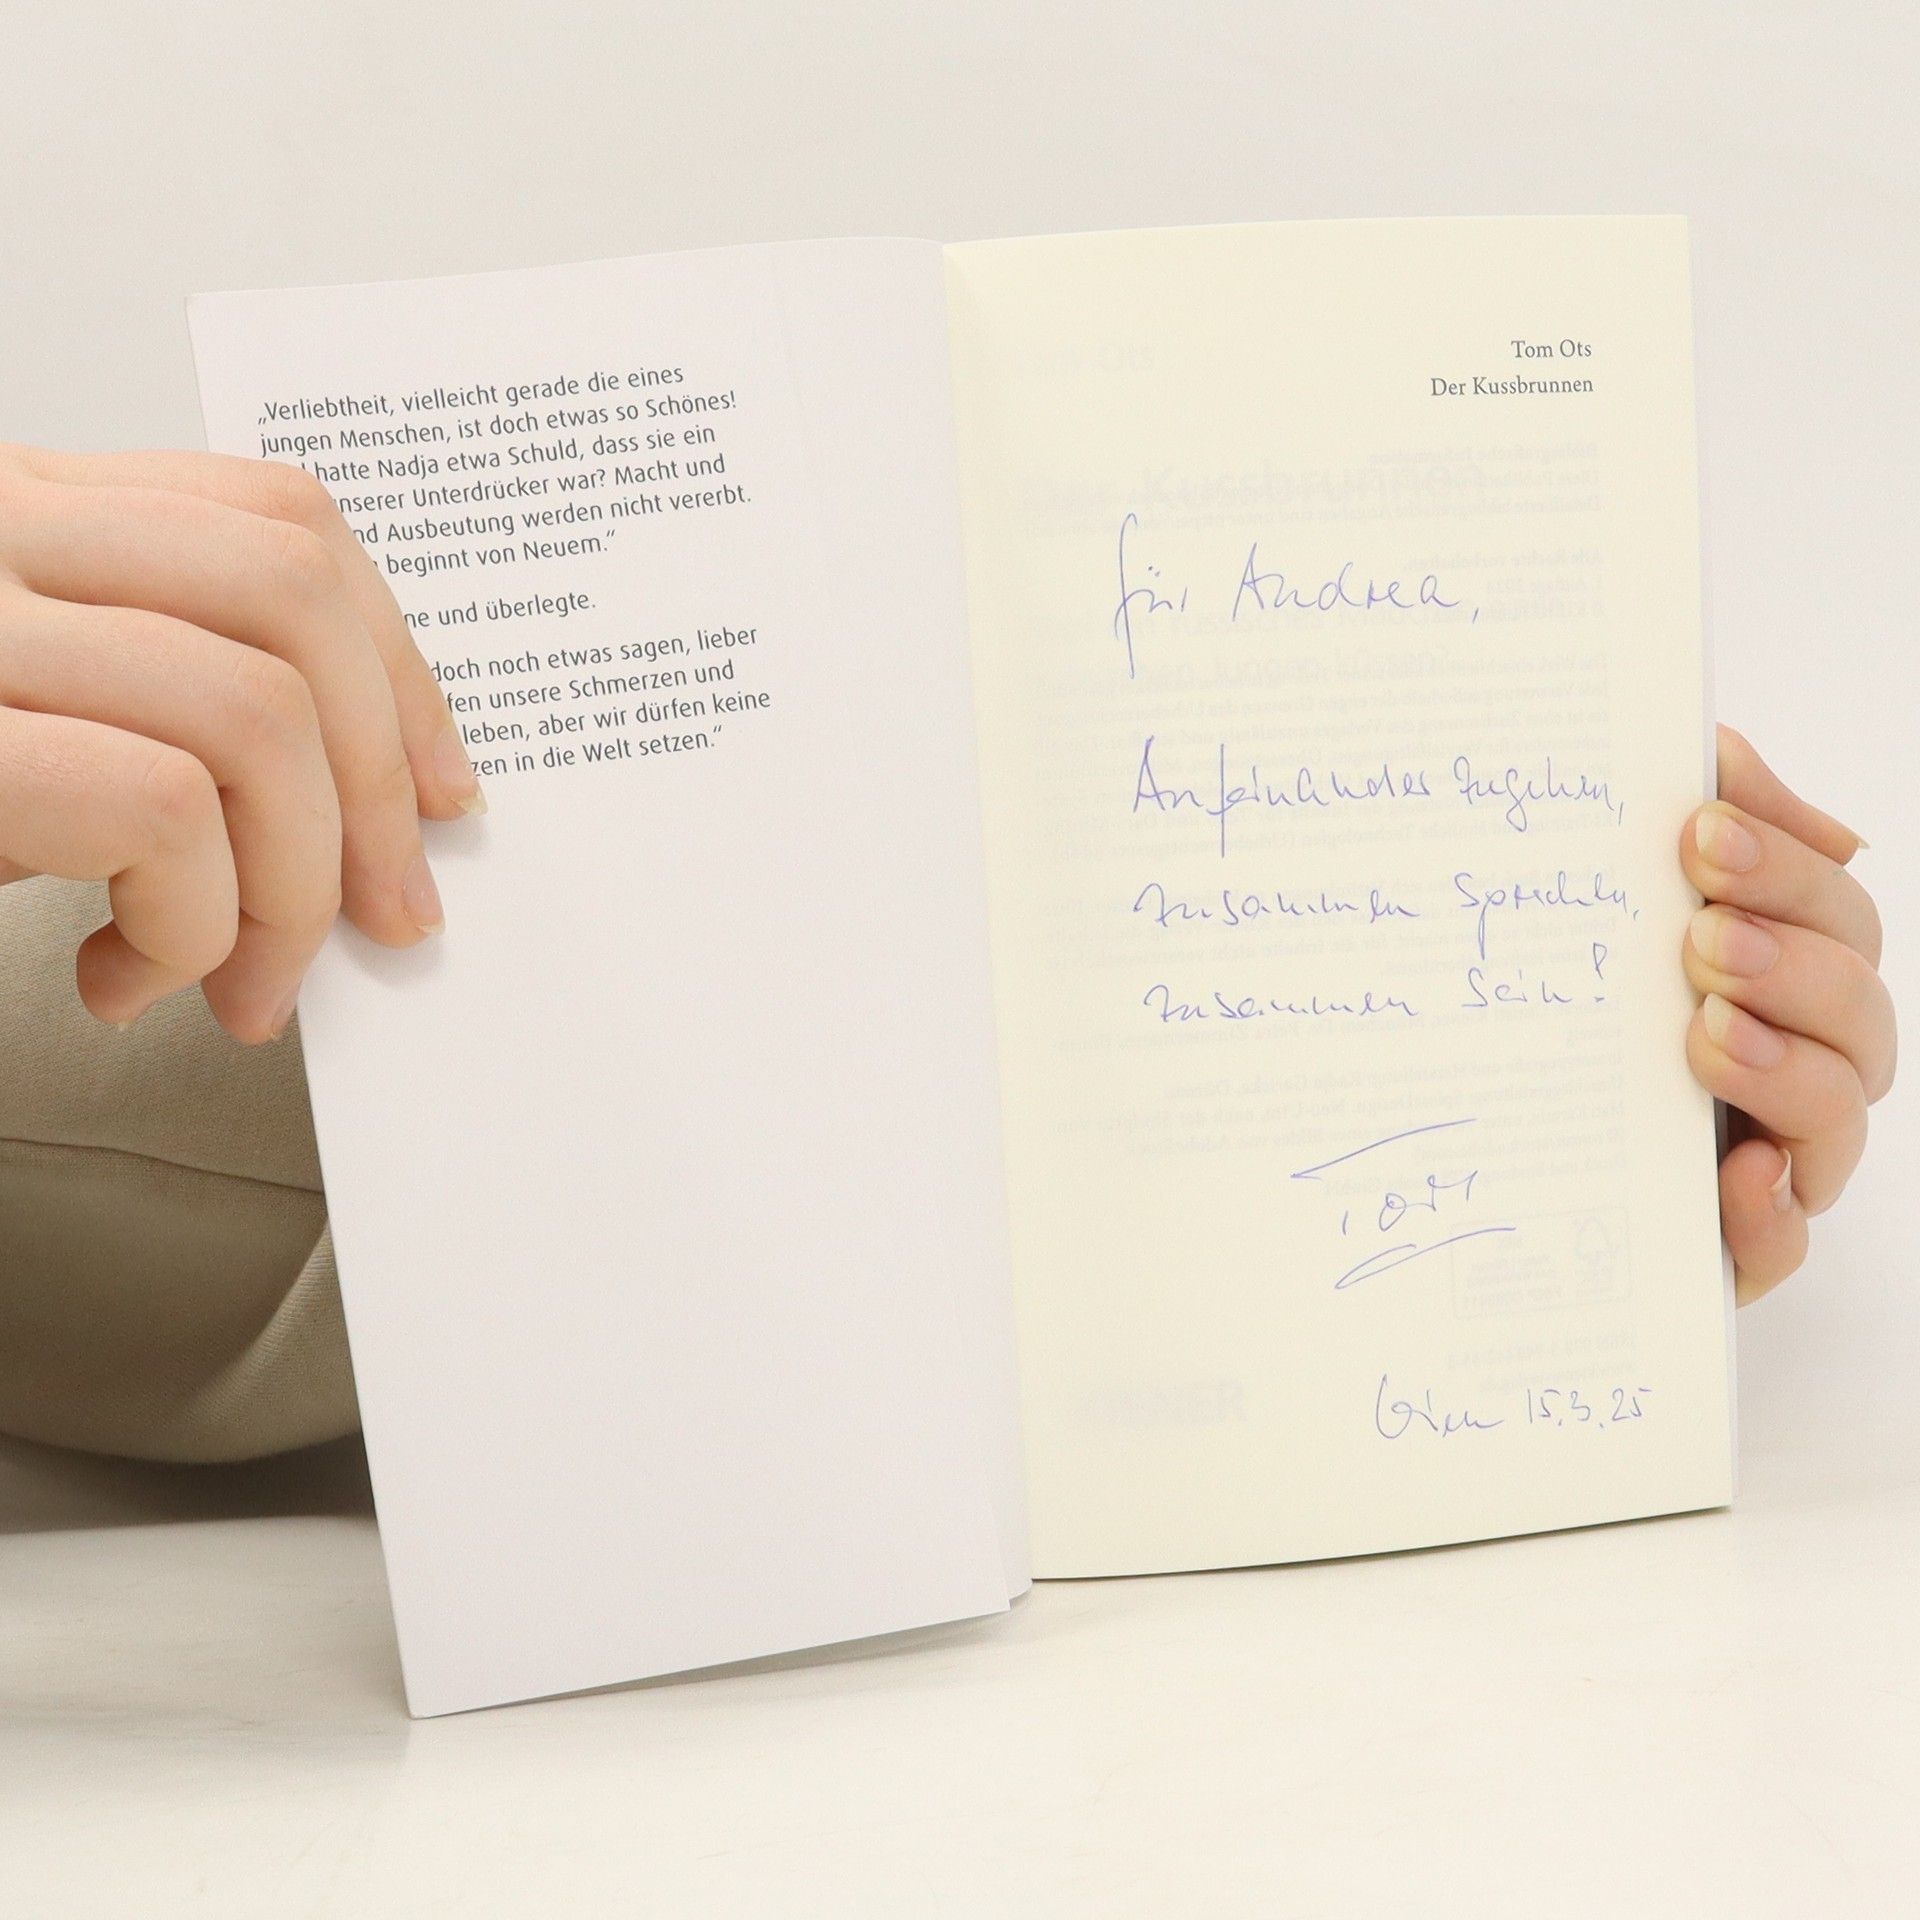 „Verliebtheit, vielleicht gerade die eines
jungen Menschen, ist doch etwas so Schönes!
hatte Nadja etwa Schuld, dass sie ein
unserer Unterdrücker war? Macht und
Ausbeutung werden nicht vererbt.
beginnt von Neuem.“
und überlegte.
doch noch etwas sagen, lieber
unsere Schmerzen und
leben, aber wir dürfen keine
in die Welt setzen.“
Tom Ots
Der Kussbrunnen
für Andrea,
Aufeinander zugehen,
zusammen sprechen,
zusammen sein!
Tom
Wien 15.3.25